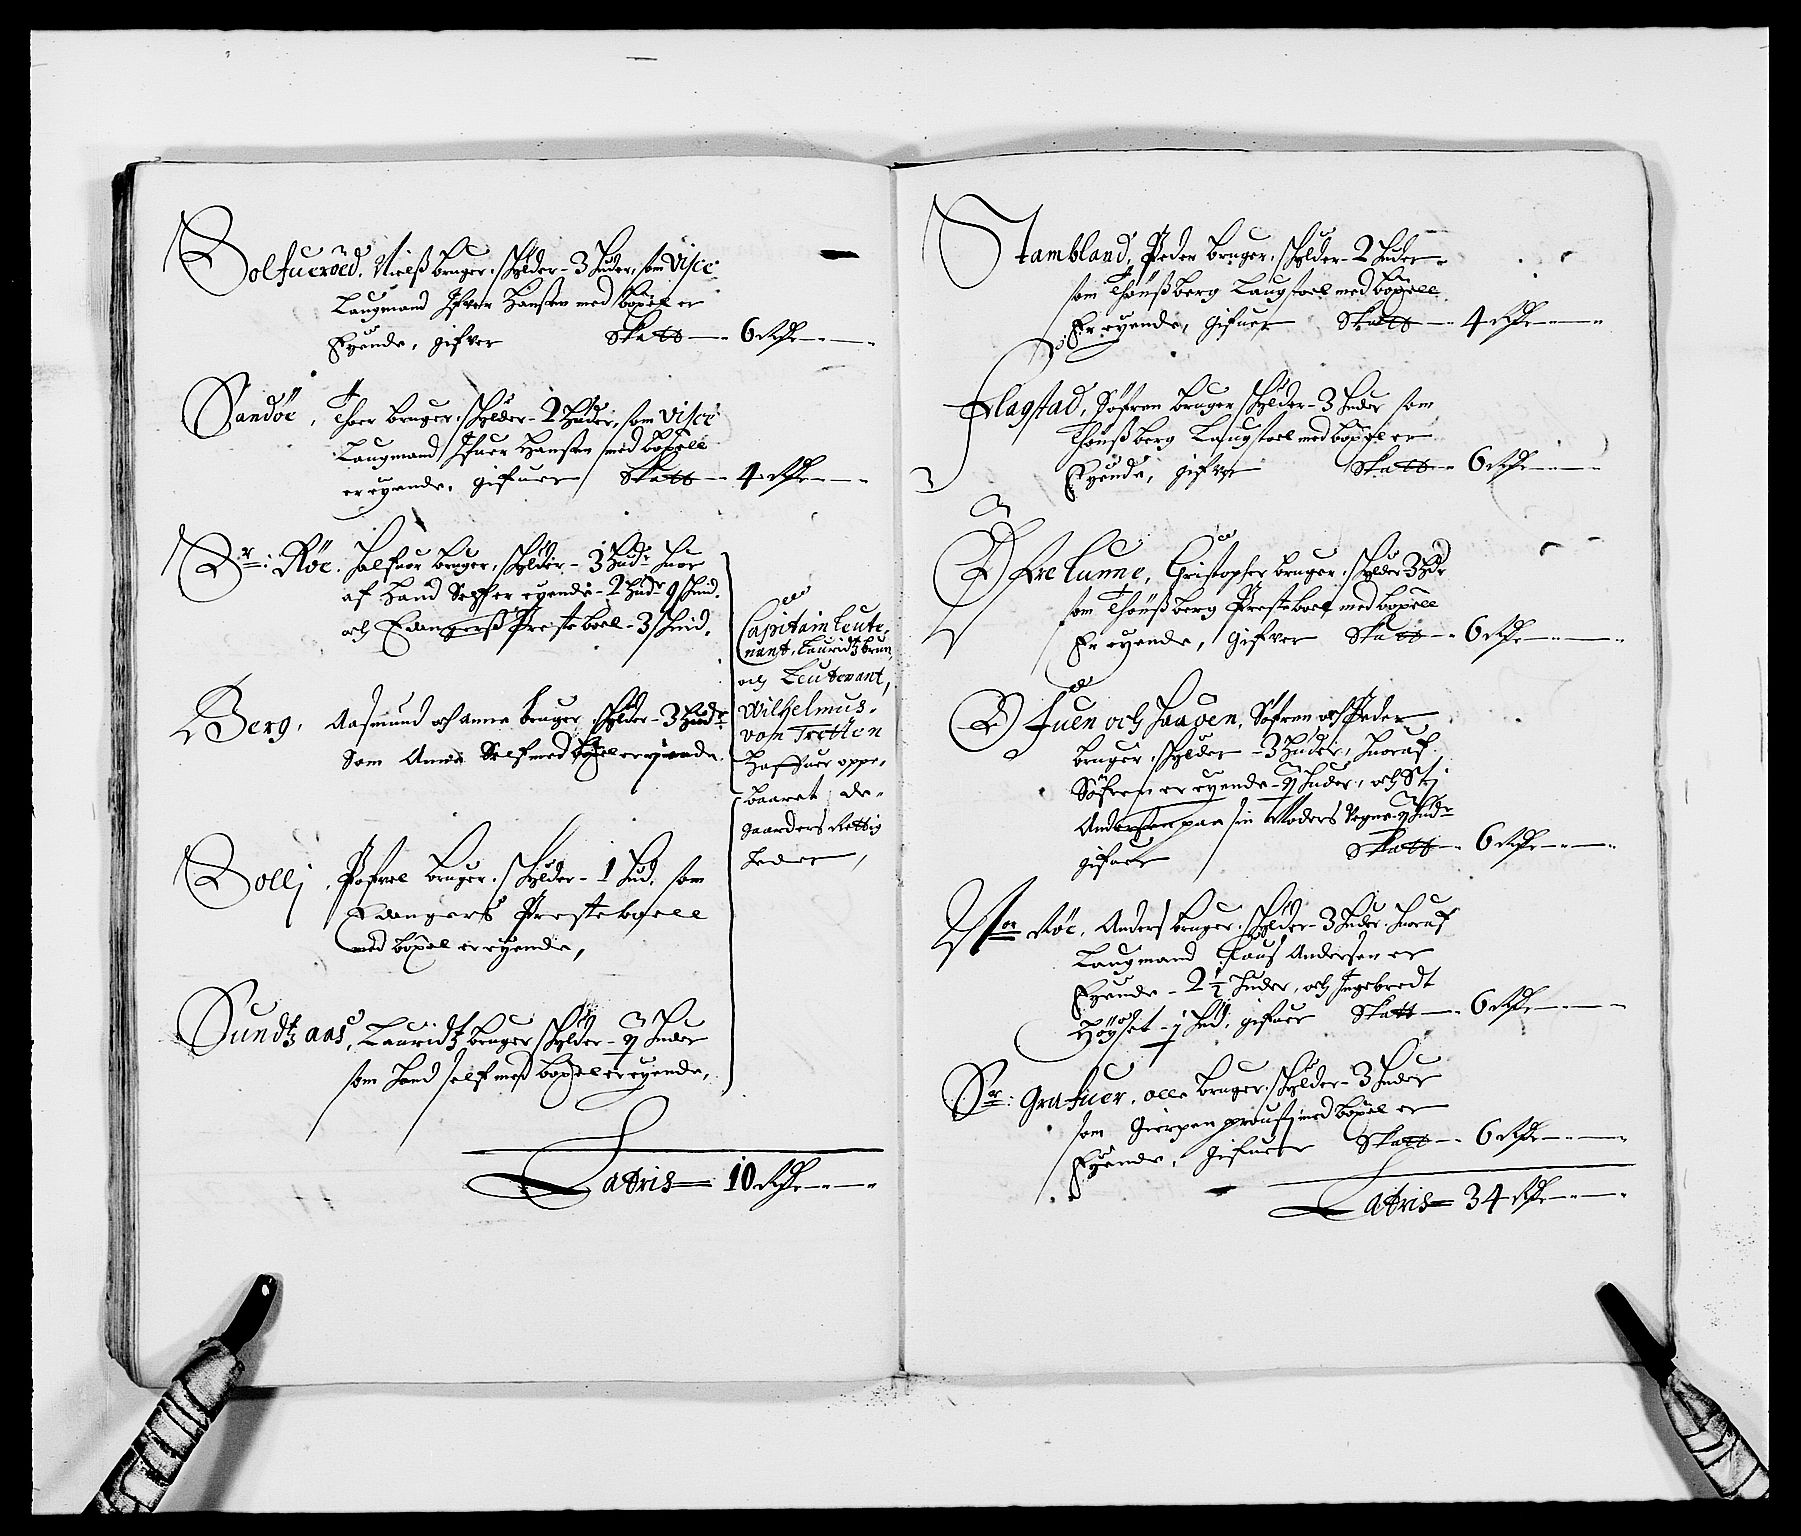 Bolfueröed. Nielß bruger, skylder - 3 Huder, som Visce
Laugmand Ifver Hansen med böxel er
Eyende, gifver Skatt - 6 Rdr
Sandöe, Thoer bruger, skylder - 2 Huder, som Visce
Laugmand Ifuer Hansen med böxell
er eyende, gifuer Skatt - 4 Rdr
Sr: Röe. Halfuor bruger, skylder - 3 Hud: huor
af Hand Self er eyende - 2 Hudr 9 skind.
och Edangerß Presteboel - 3 skind.
Berg, Aasmund och Anne bruger skylder - 3 Hudr
Som Anne Self med böxel er eyende.
Bollj, Pofvel bruger. skylder - 1 Hud. som
Edangers Presteboell
med böxel er eyende,
Sundtzaas, Lauridtz bruger skylder - Huder
som hand self med böxel er eyende,
Capitain leute,
nant, Lauridtz brun,
och Leutenant,
Wilhelmus.
von Tretten
Haffuer oppe,
baaret de,
gaarders Rettig
heder,
Latris - 10 Rdr
Stambland, Peder bruger, skylder - 2 Huder
som Thönßberg Laugstoel med böxell
Er eyende, gifuer Skatt - 4 Rdr
Flagstad, Söfren bruger skylder - 3 Huder som
Thönßberg Laugstoel med böxel er
Eyende, gifver Skatt - 6 Rdr
Cristopher bruger. skylder 3 Hdr
som Thönßberg Presteboel med böxell
Er eyende, gifver Skatt - 6 Rdr
och Haagen, Söfren och Peder
bruger, skylder - 3 Huder, huoraf
Söfren er eyende - Huder, och
Andersen paa sin Moders Vegne Hudr
gifuer Skatt - 6 Rdr
Nor Röe, Anders bruger. skylder - 3 Huder. huoraf
Laugmand Claus Andersen er
Eyende - 2 1/2 Huder, och Ingebredt
Höyset - Hud, gifuer Skatt - 6 Rdr
Sr: Grafuer, Olle bruger. skylder - 3 Huder
som Gierpen proustj med böxel er
Eyende, gifuer Skatt - 6 Rdr
Latris - 34 Rdr